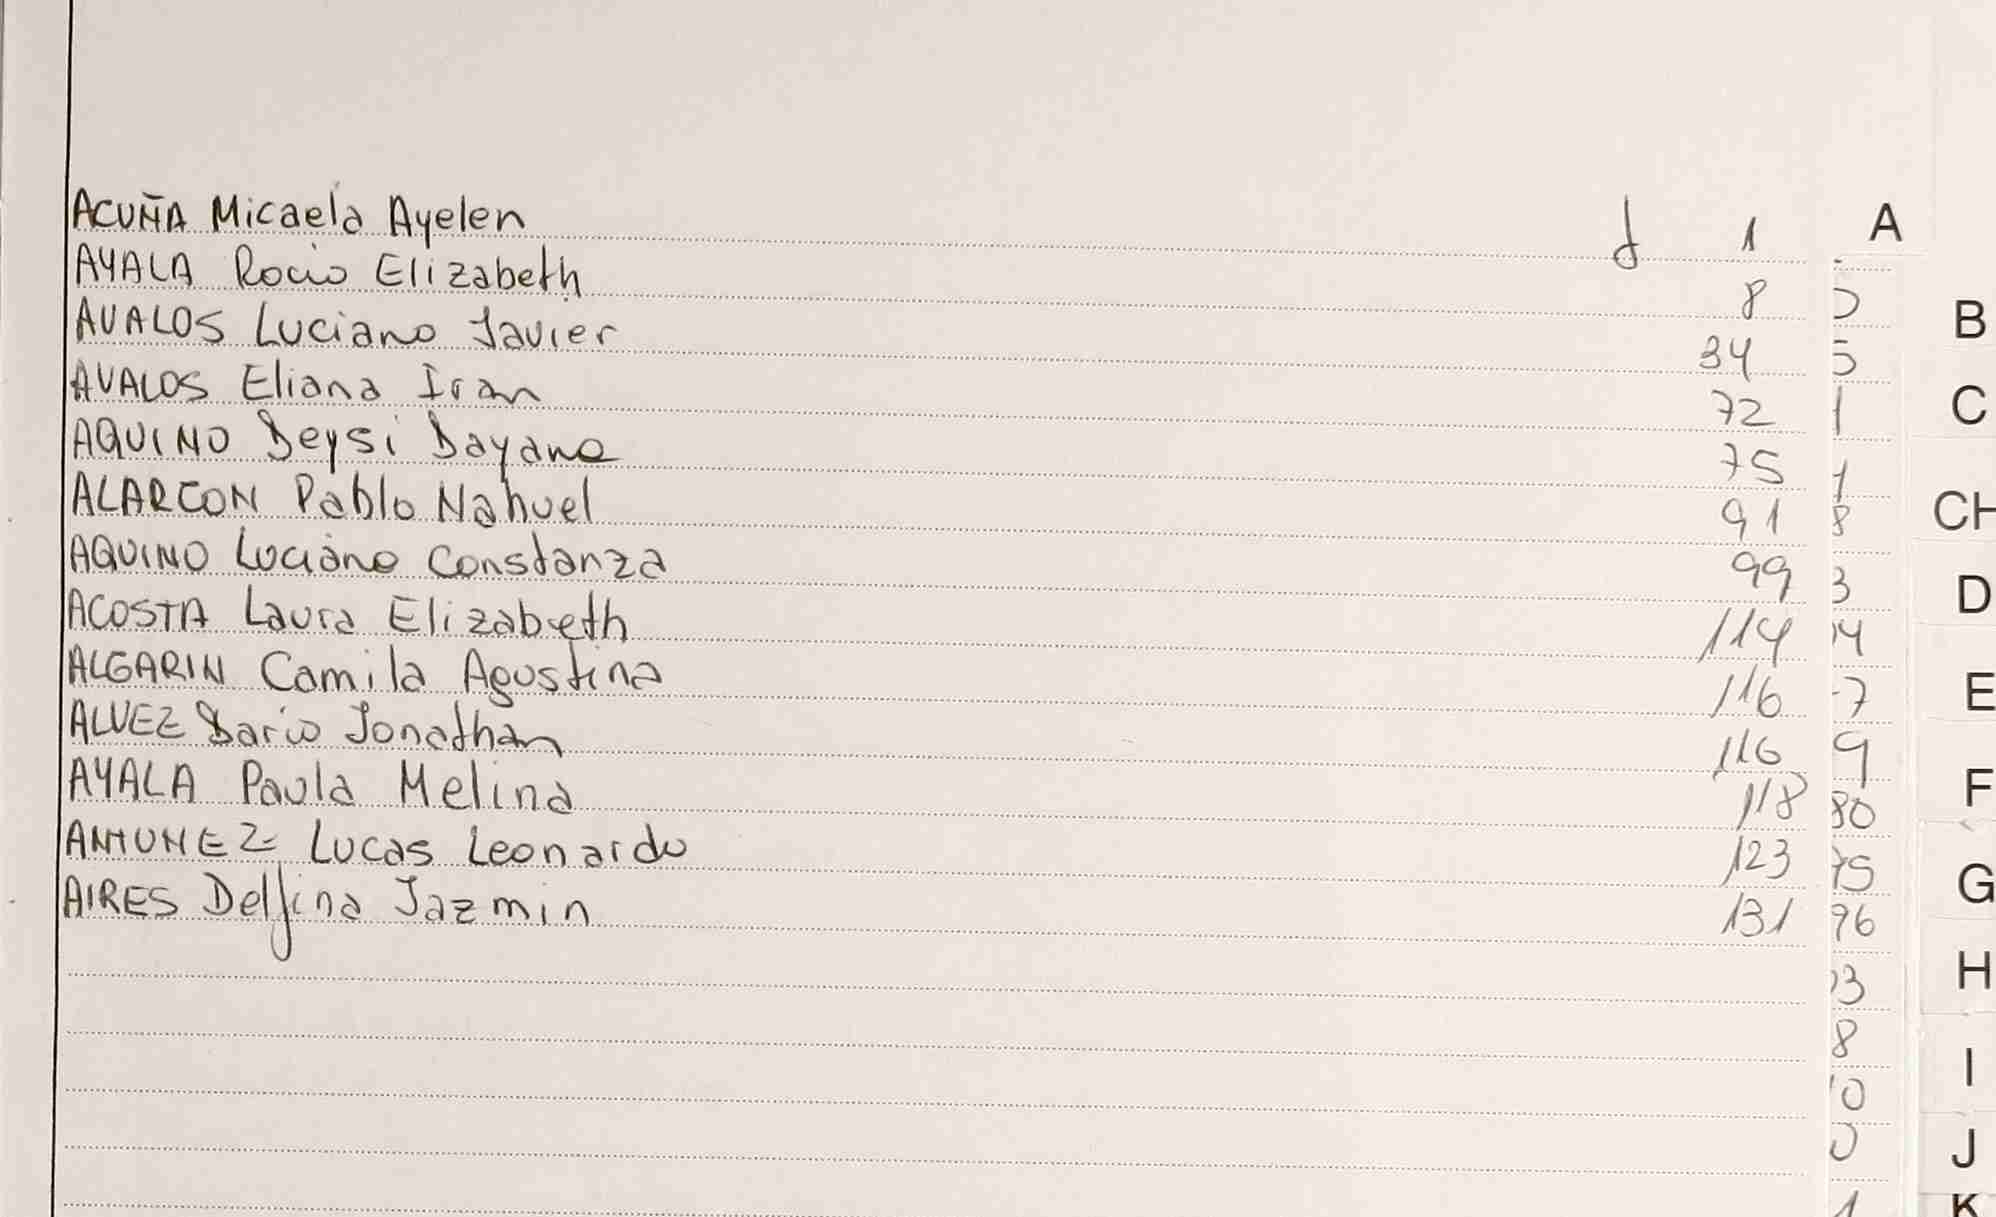 ACUÑA Micaela Ayelen f 1
AYALA Rocio Elizabeth 8
AVALOS Luciano Javier 34
AVALOS Eliana Ivan 72
AQUINO Deysi Dayana 75
ALARCON Pablo Nahuel 91
AQUINO Luciano Constanza 99
ACOSTA Laura Elizabeth 114
ALGARIN Camila Agostina 116
ALVEZ Dario Jonathan 116
AYALA Paula Melina 118
ANTUNEZ Lucas Leonardo 123
AIRES Delfina Jazmin 131
A
B
C
CH
D
E
F
G
H
I
J
K